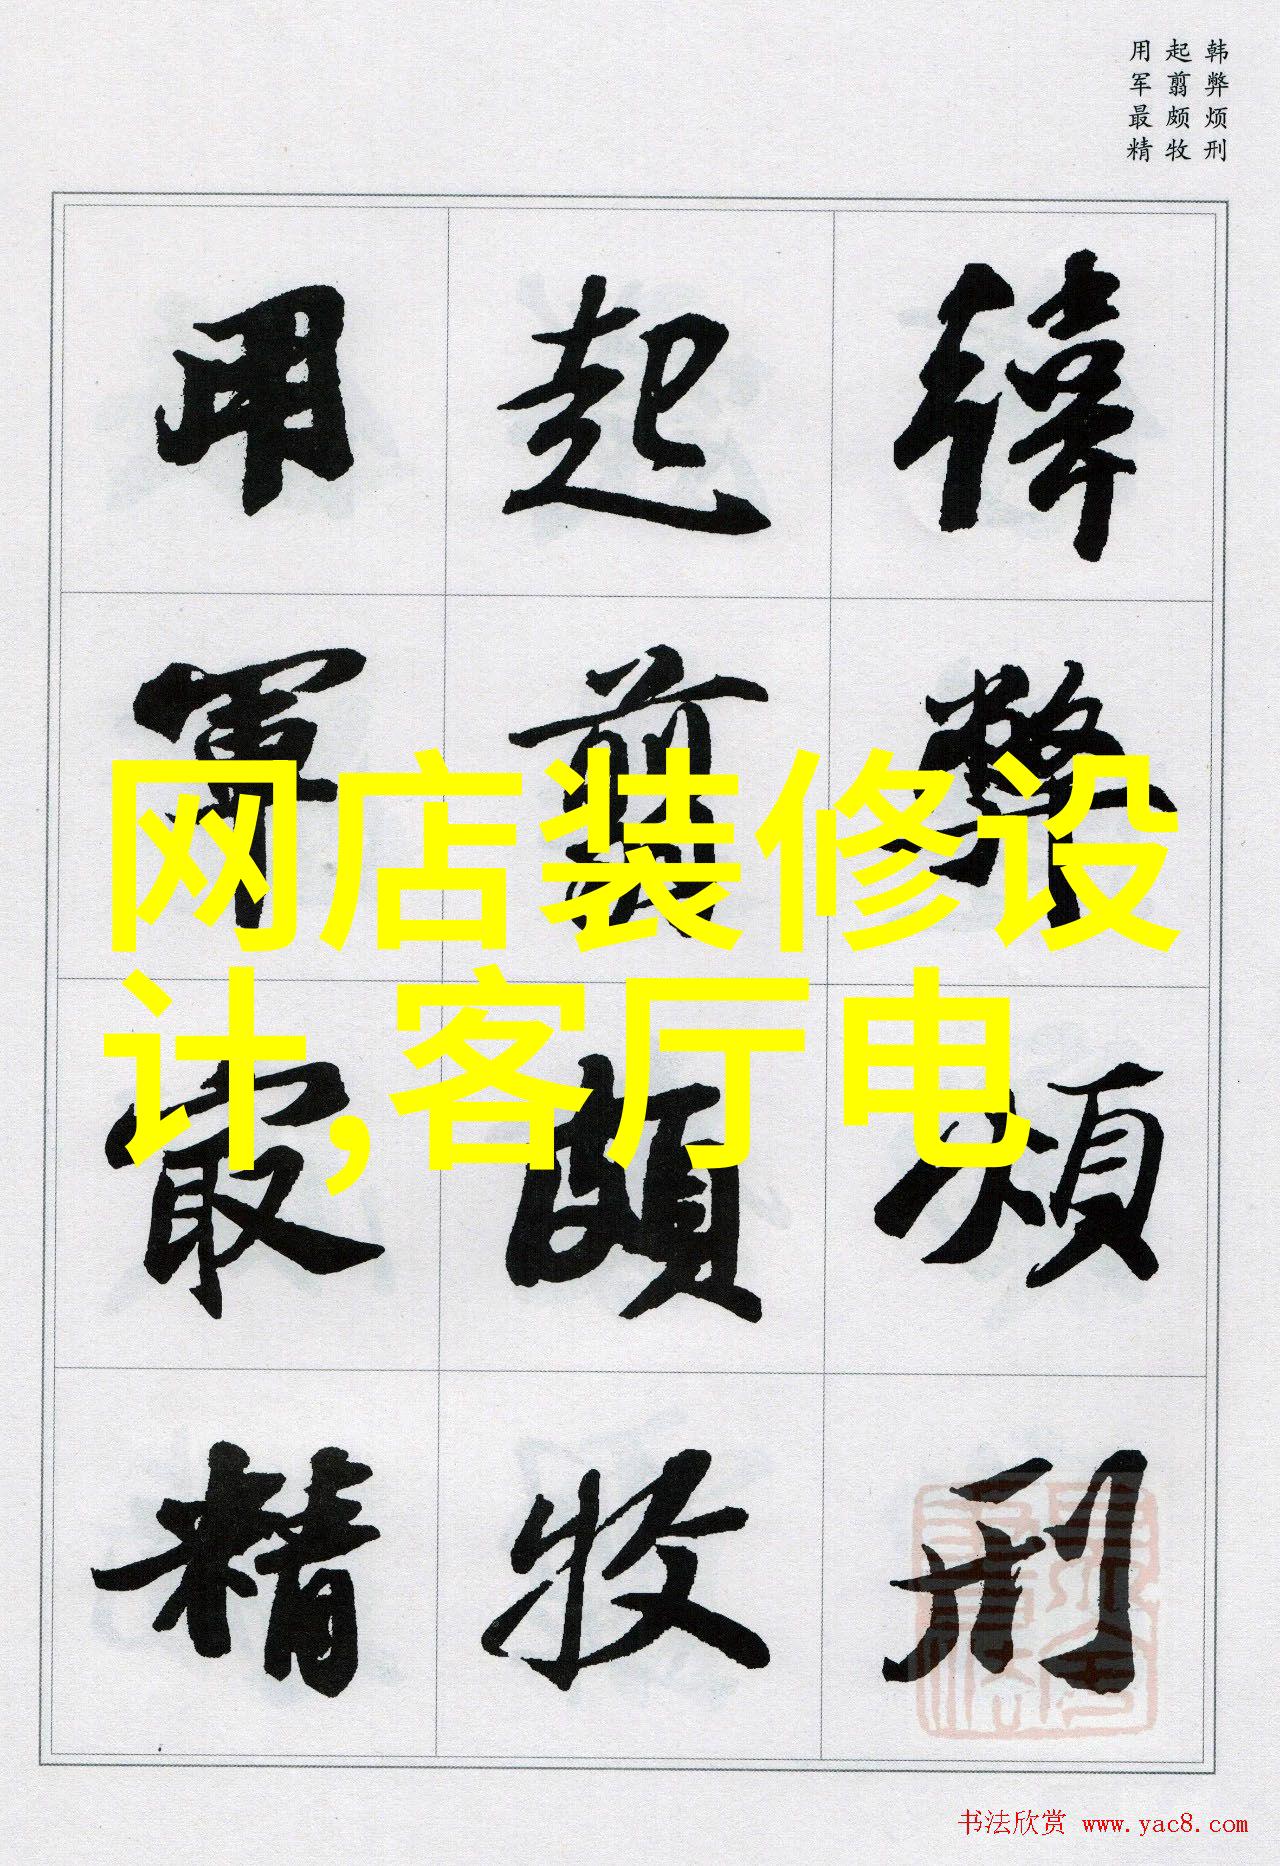 韩弊烦刑
起翦颇牧
用军最精
韓弊煩刑
起翦頗牧
用軍最精
网店装修设
计,客厅电
书法欣赏 www.yac8.com